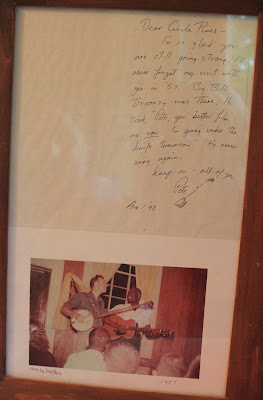 Dear Circle Pines –
I'm so glad you
are still going strong. I'll
never forget my visit with
you in '57. Big Bill
Broonzy was there. He
said, "Pete, you better film
me now. I'm going under the
knife tomorrow." He never
sang again.
Keep on – all of you
Pete
Aug 1 '98
1957